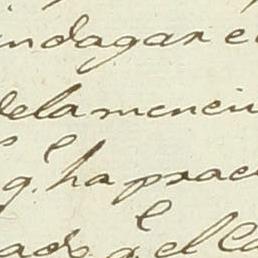 indagar e
dela mencio
qe ha prac
ado qe el Co